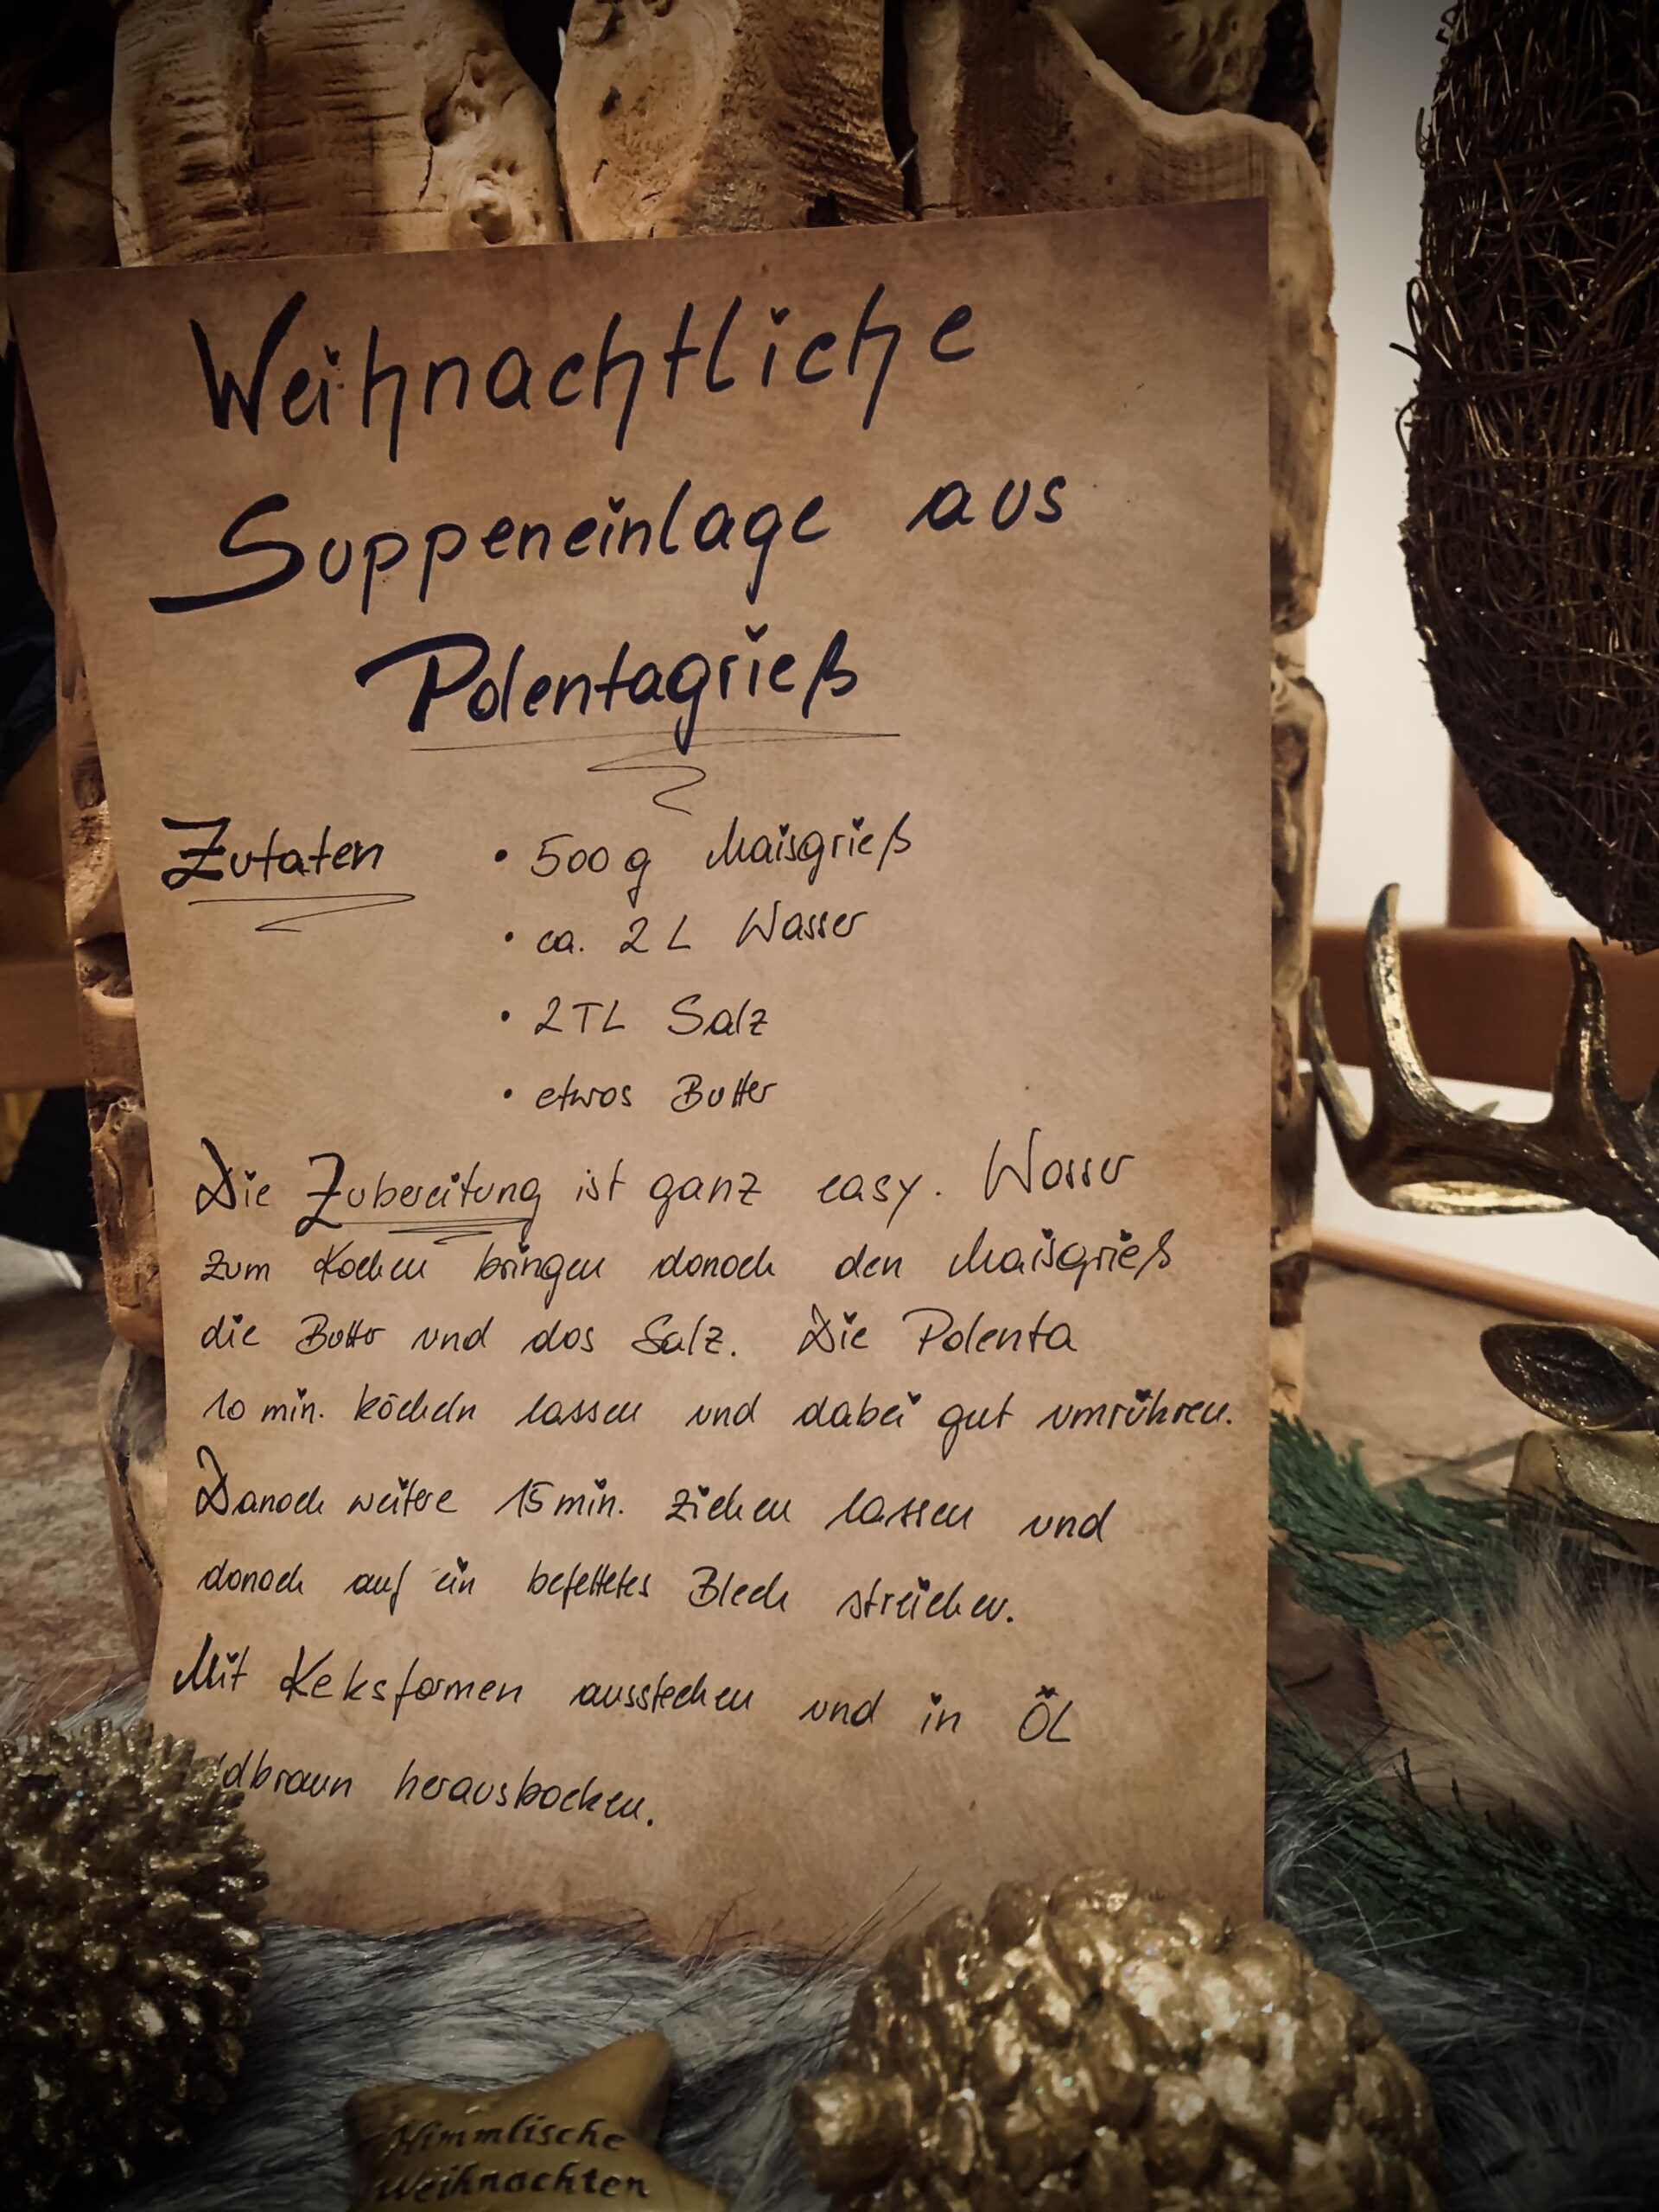 Weihnachtliche
Suppeneinlage aus
Polentagrieß
Zutaten
• 500g Maisgrieß
• ca. 2L Wasser
• 2TL Salz
• etwas Butter
Die Zubereitung ist ganz easy. Wasser
zum Kochen bringen danach den Maisgrieß
die Butter und das Salz. Die Polenta
10 min. köcheln lassen und dabei gut umrühren.
Danach weitere 15 min. ziehen lassen und
danach auf ein befettetes Blech streichen.
Mit Keksformen ausstechen und in ÖL
ldbraun herausbacken.
Himmlische
Weihnachten